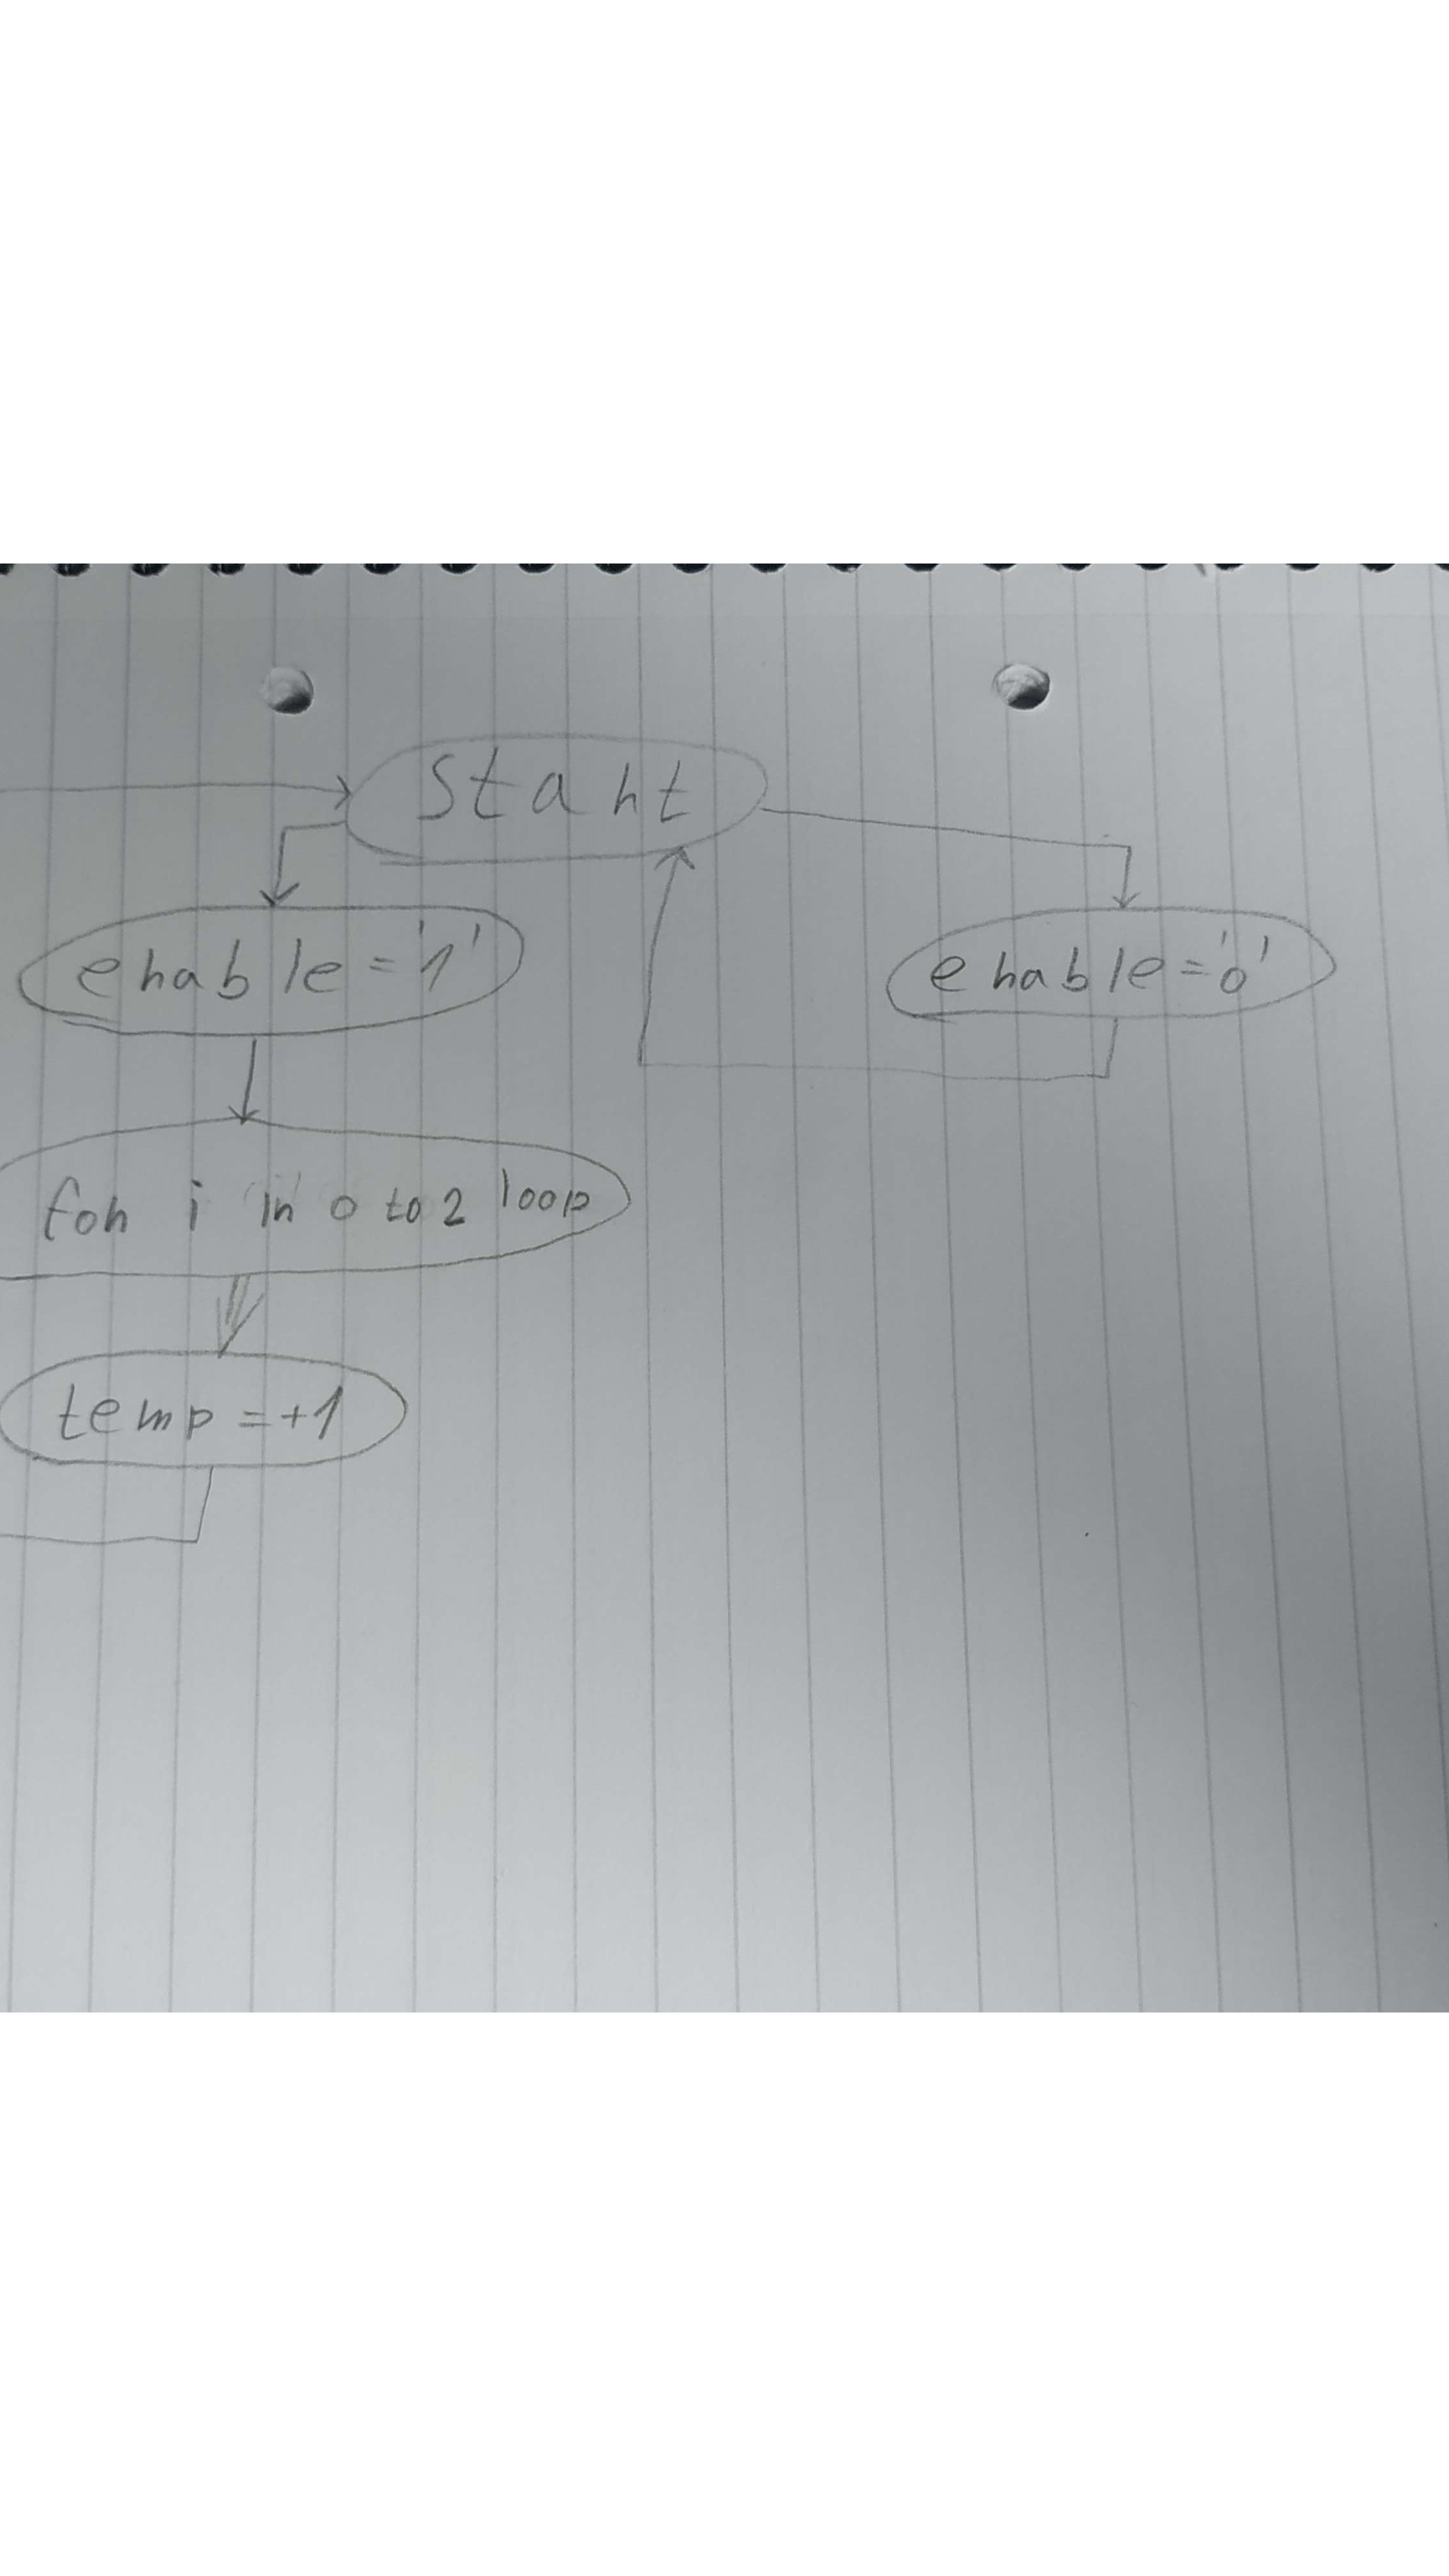 start
enable='1'
enable='0'
for i in 0 to 2 loop
temp=+1